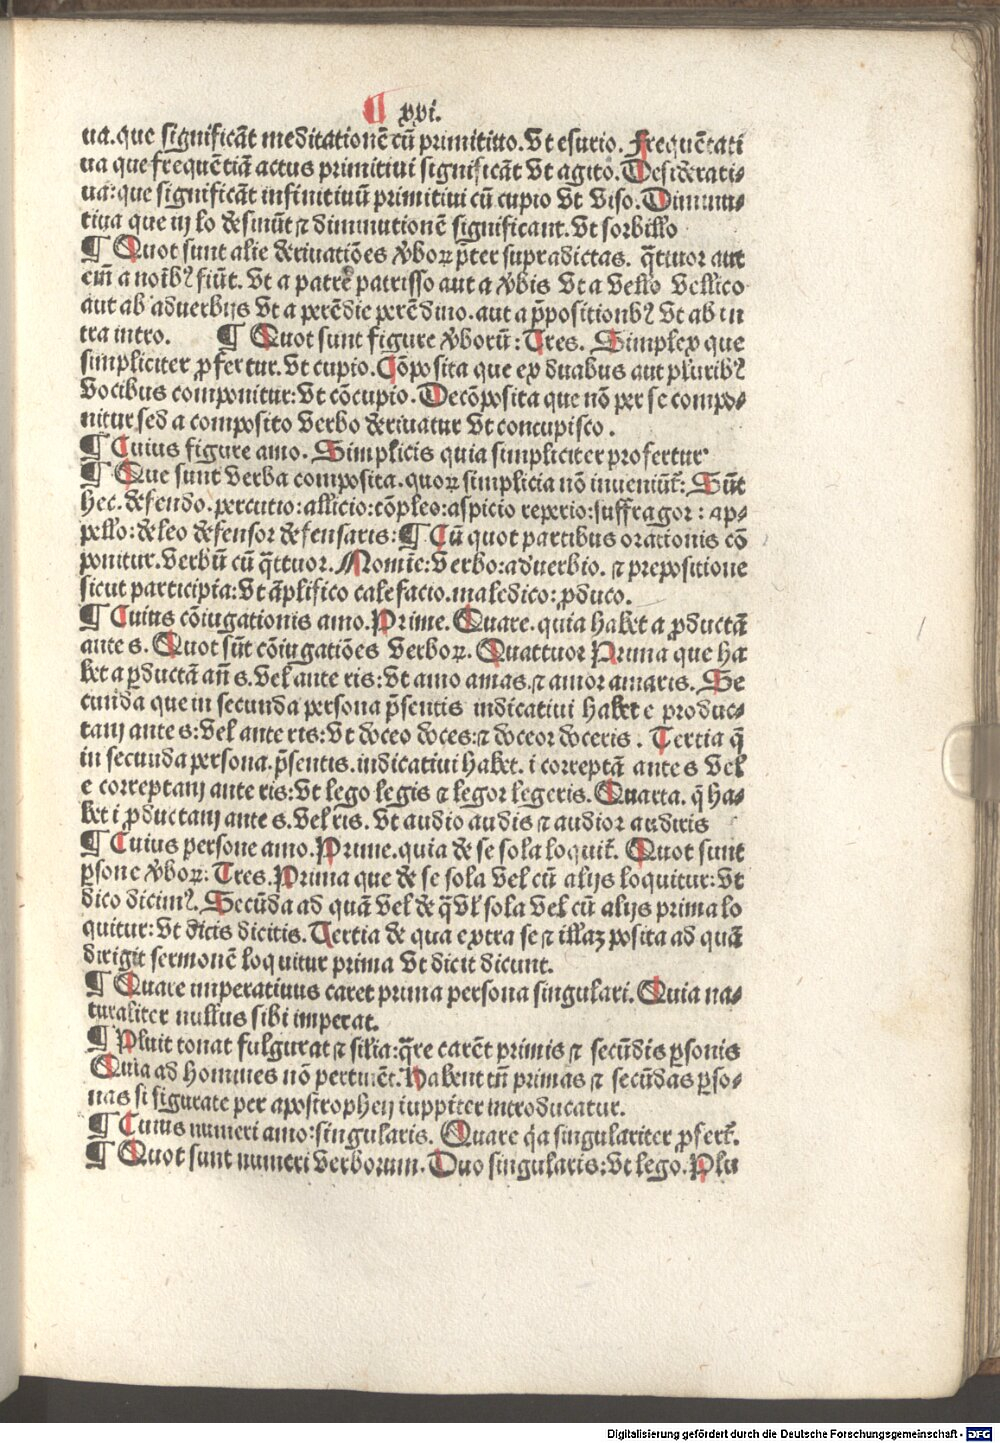 ¶ xvi.
ua. que significāt meditationē cū primitiuo. Vt esurio. Frequētati
ua que frequētiā actus primitiui significāt Vt agito. Desiderati-
ua: que significāt infinitiuū primitiui cū cupio Vt Viso. Diminu-
tiua que in lo desinūt ⁊ diminutionē significant. Vt sorbillo
¶ Quot sunt alie deriuatiōes v̄boꝝ p̄ter supradictas. q̄ttuor aut
em̄ a noībꝰ fiūt. Vt a patre patrisso aut a v̄bis Vt a Vello Vellico
aut ab aduerbijs Vt a perēdie perēdino. aut a p̄positionibꝰ Vt ab in
tra intro. ¶ Quot sunt figure v̄borū: Tres. Simplex que
simpliciter ꝓfertur. Vt cupio. Cōposita que ex duabus aut pluribꝰ
Vocibus componitur: Vt cōcupio. Decōposita que nō per se compo-
nitur sed a composito Verbo deriuatur Vt concupisco.
¶ Cuius figure amo. Simplicis quia simpliciter profertur
¶ Que sunt Verba composita. quoꝝ simplicia nō inueniūt̄: Sūt
hec. defendo. percutio: allicio: cōpleo: aspicio reperio: suffragor: ap-
pello: deleo defensor defensaris: ¶ Cū quot partibus orationis cō
ponitur. Verbū cū q̄ttuor. Nomīe: Verbo: aduerbio. ⁊ prepositione
sicut participia: Vt āplifico calefacio. maledico: ꝓduco.
¶ Cuius cōiugationis amo. Prime. Quare. quia habet a ꝓductā
ante s. Quot sūt cōiugatiōes Verboꝝ. Quattuor Prima que ha
bet a ꝓductā an̄ s. Vel ante ris: Vt amo amas. ⁊ amor amaris. Se
cunda que in secunda persona p̄sentis indicatiui habet e produc-
tam ante s: Vel ante ris: Vt doceo doces: ⁊ doceor doceris. Tertia q̄
in secunda persona. p̄sentis. indicatiui habet. i correptā ante s Vel
e correptam ante ris: Vt lego legis ⁊ legor legeris. Quarta. q̄ ha-
bet i ꝓductam ante s. Vel ris. Vt audio audis ⁊ audior audiris
¶ Cuius persone amo. Prime. quia de se sola loquit̄. Quot sunt
ꝑsone v̄boꝝ: Tres. Prima que de se sola Vel cū alijs loquitur: Vt
dico dicimꝰ. Secūda ad quā Vel de q̄ Vl̄ sola Vel cū alijs prima lo
quitur: Vt dicis dicitis. Tertia de qua extra se ⁊ illaz posita ad quā
dirigit sermonē loquitur prima Vt dicit dicunt.
¶ Quare imperatiuus caret prima persona singulari. Quia na-
turaliter nullus sibi imperat.
¶ Pluit tonat fulgurat ⁊ silia: q̄re carēt primis ⁊ secūdis ꝑsonis
Quia ad homines nō pertinēt. Habent tn̄ primas ⁊ secūdas ꝑso-
nas si figurate per apostrophen iuppiter introducatur.
¶ Cuius numeri amo: singularis. Quare q̄a singulariter ꝓfert̄.
¶ Quot sunt numeri Verborum. Duo singularis: Vt lego. Plu
Digitalisierung gefördert durch die Deutsche Forschungsgemeinschaft - DFG